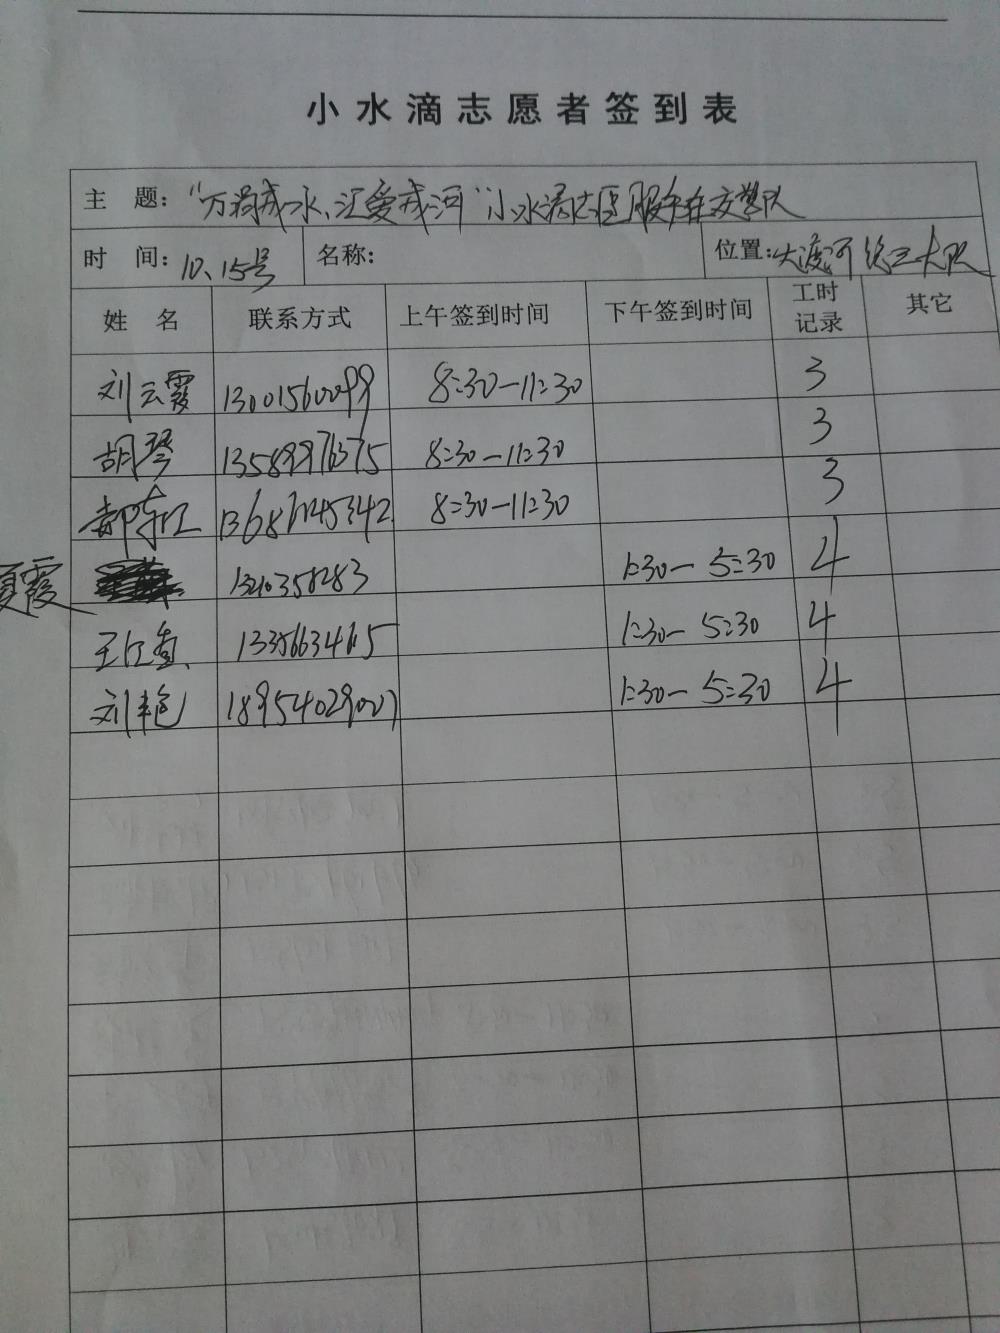 小水滴志愿者签到表
主 题: "万滴成水、汇爱成河"小水滴志愿服务在交警队
时 间: 10、15号 名称: 位置: 大渡河 大队
姓 名 联系方式 上午签到时间 下午签到时间 工时记录 其它
刘云霞 13001560099 8:30-11:30 3
胡琴 13589976375 8:30-11:30 3
郝 13686145342 8:30-11:30 3
夏霞 1:30-5:30 4
王 1:30-5:30 4
刘艳 18954029007 1:30-5:30 4